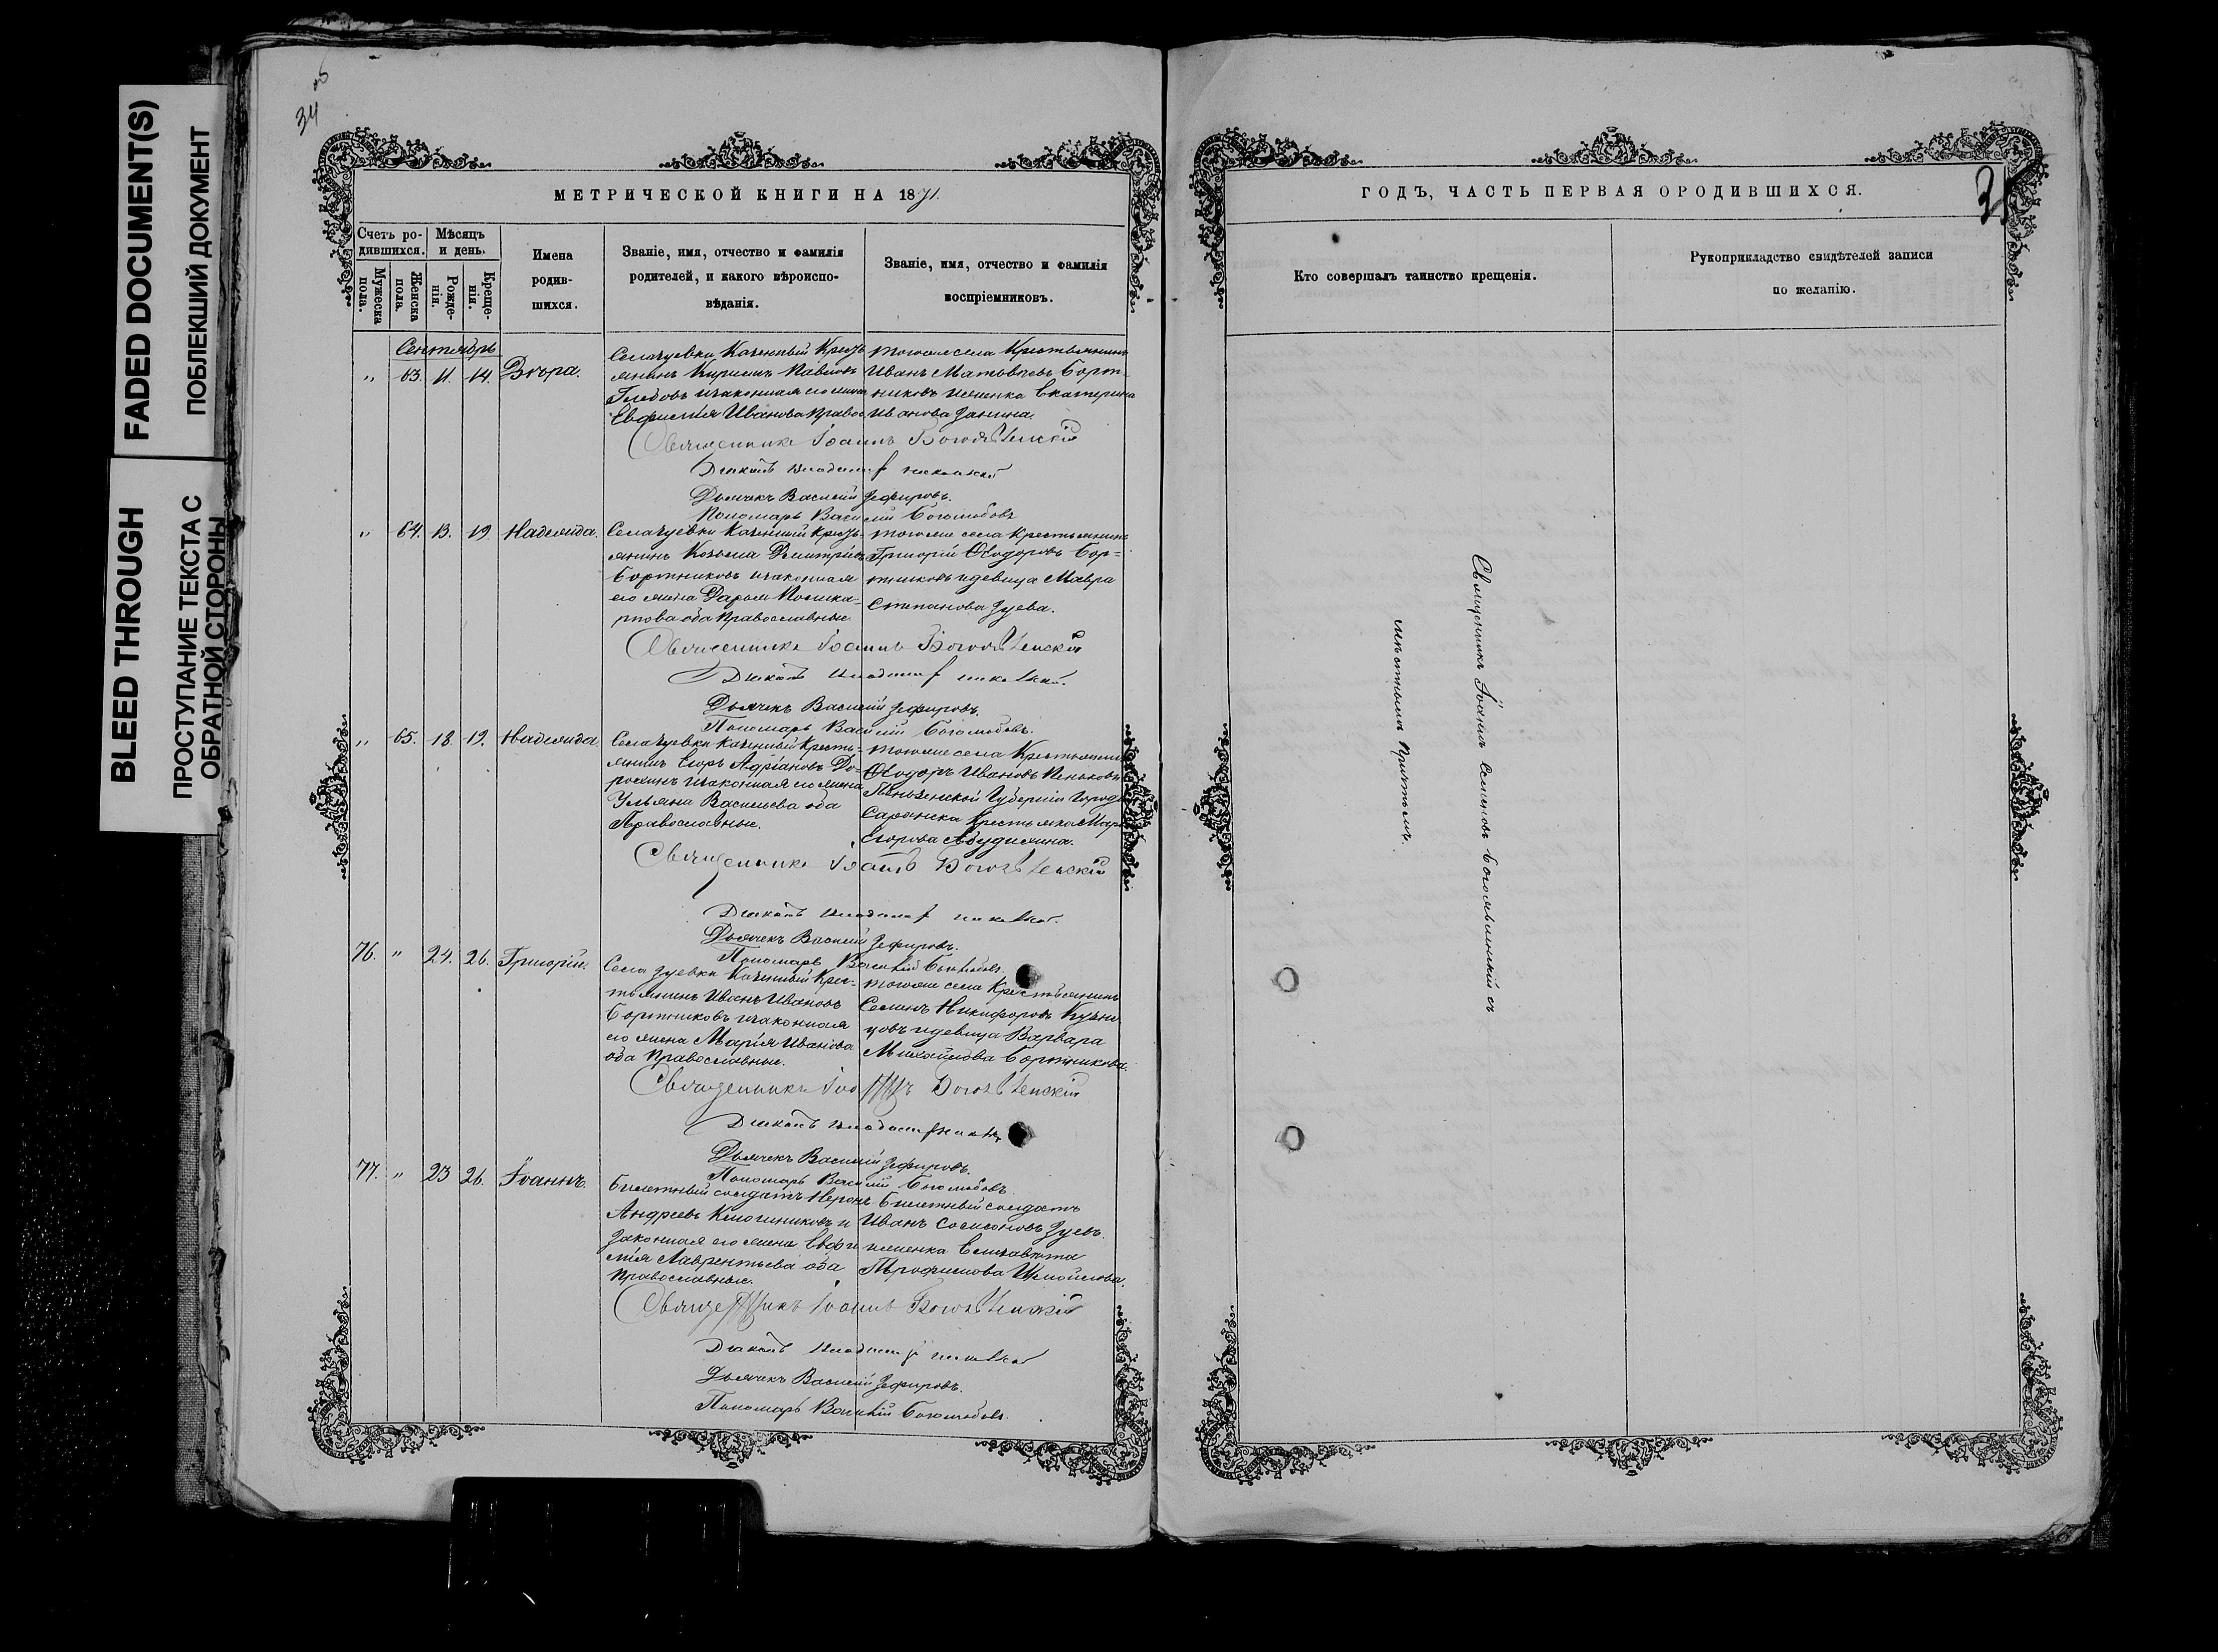 FADED DOCUMENT(S)
ПОБЛЕКШИЙ ДОКУМЕНТ
BLEED THROUGH
ПРОСТУПАНИЕ ТЕКСТА С
ОБРАТНОЙ СТОРОНЫ
34 об
МЕТРИЧЕСКОЙ КНИГИ НА 1871.
Счетъ ро-
дившихся.
Мѣсяцъ
и день.
Мужеска
пола.
Женска
пола.
Рожде-
нія.
Креще-
нія.
Имена
родив-
шихся.
Званіе, имя, отчество и фамилія
родителей, и какого вѣроиспо-
вѣданія.
Званіе, имя, отчество и фамилія
воспріемниковъ.
Сентябрь
" 63. 11. 14. Вѣра.
Села Зуевки Казенный Кресть
янинъ Кирилъ Павловъ
Глебовъ изаконная его жена
Евфимія Иванова Правос
тогоже села Крестьянинъ
Иванъ Матвѣевъ Борт-
никовъ иженка Екатерина
Иванова Занина.
Священникъ Іоаннъ Богоявленскій
Діаконъ Владимір
Дьячекъ Василій Зефировъ.
Пономарь Василій Боголюбовъ
" 64. 13. 19 Надежда.
Села Зуевки Казенный Кресть-
янинъ Козьма Дмитріевъ
Бортниковъ изаконная
его жена Дарья Поликар-
пова оба Православные.
тогоже села Крестьянинъ
Григорій Ѳеодоровъ Бор-
тниковъ идевица Мавра
Степанова Зуева.
Священникъ Іоаннъ Богоявленскій
Діаконъ Владимір
Дьячекъ Василій Зефировъ.
Пономарь Василій Боголюбовъ.
" 65. 18. 19. Надежда.
Села Зуевки Казенный Кресть-
янинъ Егоръ Адріановъ До-
рохинъ изаконная его жена
Ульяна Васильева оба
Православные.
тогоже села Крестьянинъ
Ѳеодоръ Ивановъ Пеньковъ
Пензенской Губерніи Города
Саранска Крестьянка
Егорова
Священникъ Іоаннъ Богоявленскій
Діаконъ Владимір
Дьячекъ Василій Зефировъ.
Пономарь Василій Боголюбовъ.
76. " 24. 26. Григорій.
Села Зуевки Казенный Крес-
тьянинъ Иванъ Ивановъ
Бортниковъ изаконная
его жена Марія Иванова
оба Православные.
тогоже села Крестьянинъ
Семенъ Никифоровъ Кузне
цовъ идевица Варвара
Михайлова Бортникова.
Священникъ Іоаннъ Богоявленскій
Діаконъ Владимір
Дьячекъ Василій Зефировъ.
Пономарь Василій Боголюбовъ.
77. " 23 26. Іоаннъ.
Билетный солдатъ
Андреевъ Ключниковъ и
законная его жена Евфи
мія Лаврентьева оба
Православные.
Билетный солдатъ
Иванъ Зуевъ.
иженка Елизавета
Трофимова
Священникъ Іоаннъ Богоявленскій
Діаконъ Владимір
Дьячекъ Василій Зефировъ.
Пономарь Василій Боголюбовъ.
ГОДЪ, ЧАСТЬ ПЕРВАЯ О РОДИВШИХСЯ.
35
Кто совершалъ таинство крещенія.
Рукоприкладство свидѣтелей записи
по желанію.
Священникъ Іоаннъ Семеновъ Богоявленскій съ
мѣстнымъ причтомъ.